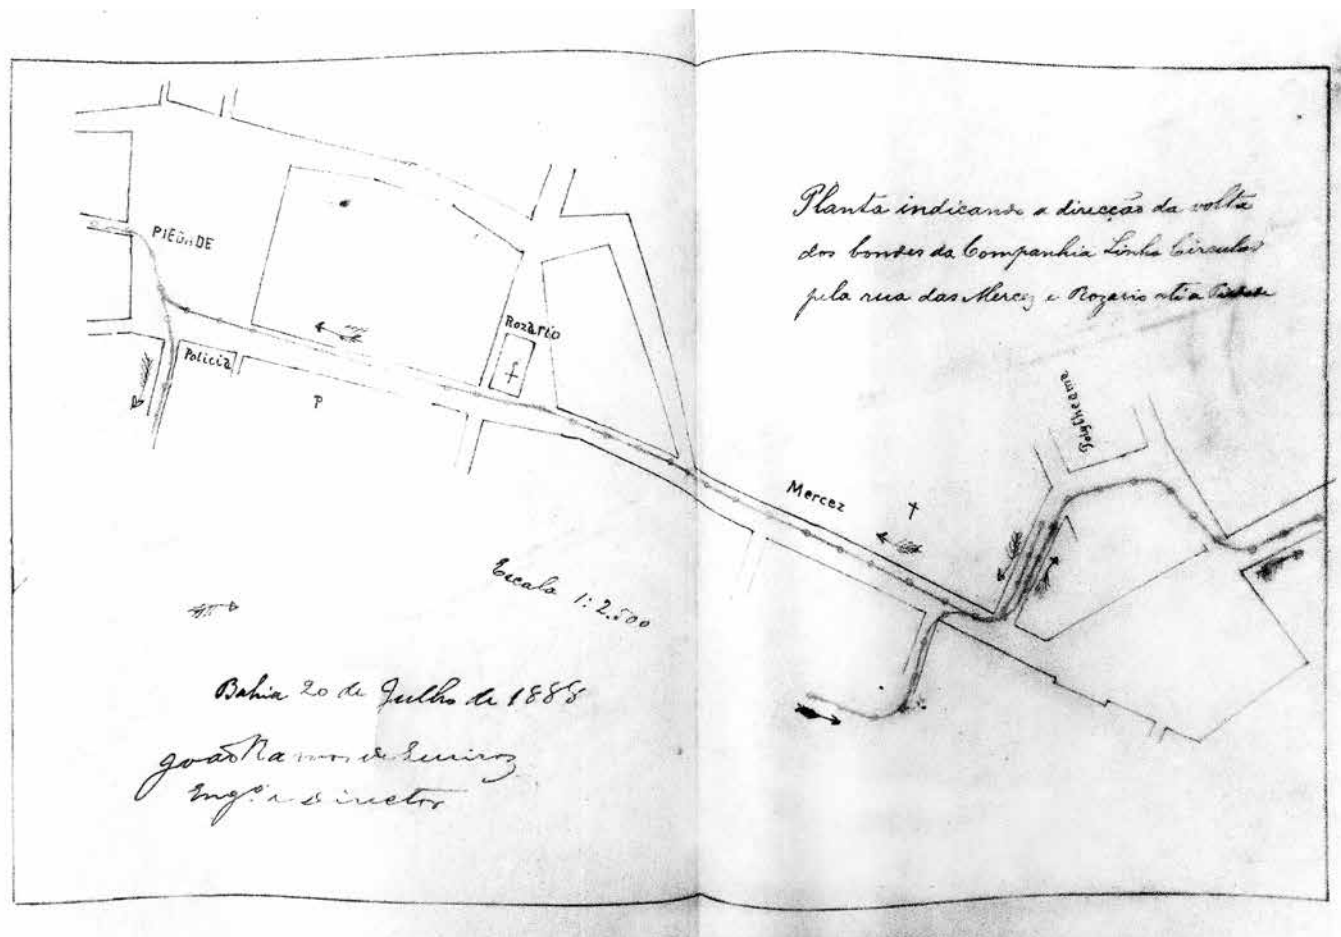 PIEDADE
Policia
P
Rozario
Mercez
Polytheama
Planta indicando a direcção da volta
dos bondes da Companhia Linha Circular
pela rua das Mercez e Rozario até a Piedade
Escala 1:2.500
Bahia 20 de Julho de 1888
João Ramos de Queiroz
Engº e Director